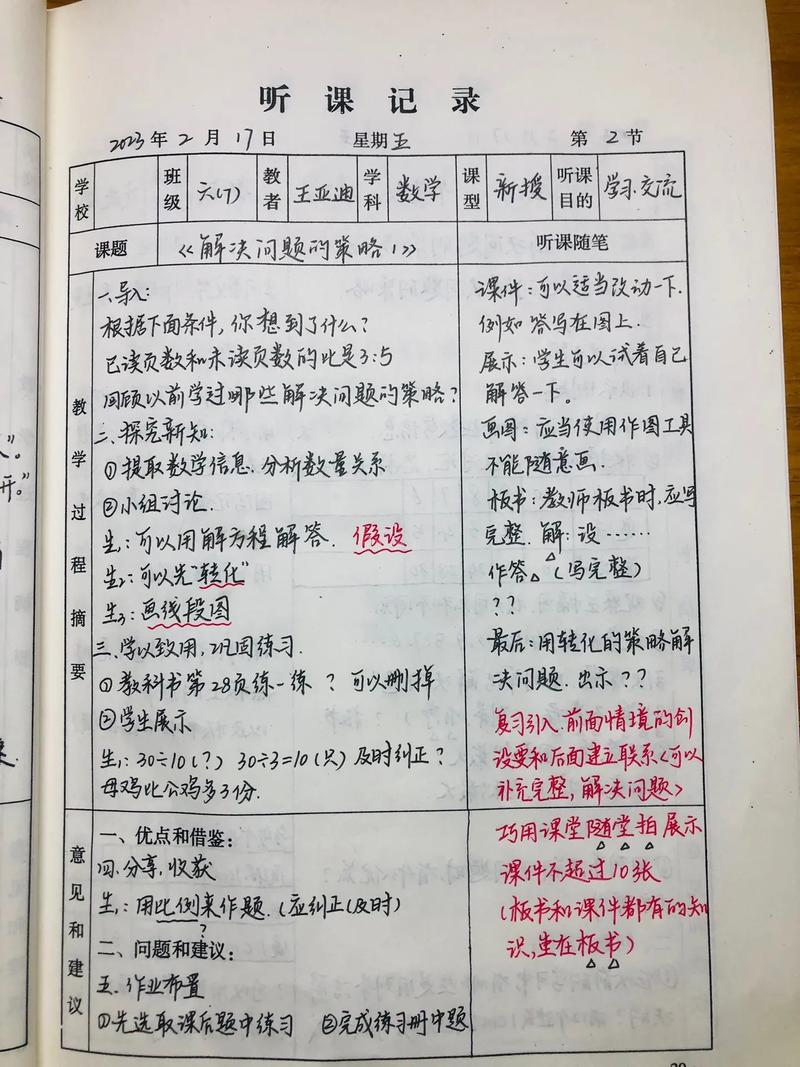 听课记录
2023年2月17日 星期五 第2节
学校 班级 六(7) 教者 王亚迪 学科 数学 课型 新授 听课目的 学习.交流
课题 《解决问题的策略1》 听课随笔
教学过程摘要
一.导入:
根据下面条件,你想到了什么?
已读页数和未读页数的比是3:5
回顾以前学过哪些解决问题的策略?
二.探究新知:
①提取数学信息.分析数量关系
②小组讨论.
生1:可以用解方程解答. 假设
生2:可以先"转化"
生3:画线段图
三.学以致用,巩固练习.
①教科书第28页练一练 ? 可以删掉
②学生展示
生1:30÷10(?) 30÷3=10(只)及时纠正?
母鸡比公鸡多3份.
课件:可以适当改动一下.
例如 答写在图上.
展示:学生可以试着自己
解答一下。
画图:应当使用作图工具
不能随意画.
板书:教师板书时,应写
完整. 解:设……
作答 (写完整)
??
最后:用转化的策略解
决问题.出示??
复习引入.前面情境的创
设要和后面建立联系<可以
补充完整,解决问题>
意见和建议
一、优点和借鉴:
四.分享,收获
生1:用比例来作题.(应纠正(及时)
?
二、问题和建议:
五.作业布置
①先选取课后题中练习 ②完成练习册中题
巧用课堂随堂拍展示
课件不超过10张
(板书和课件都有的知
识,重在板书)